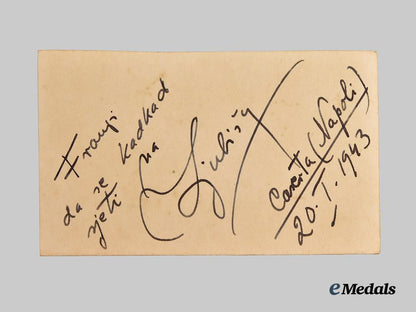 Franji
da se kadkad
sjeti na
Ljubišu
Caserta (Napoli)
20. I. 1943
eMedals